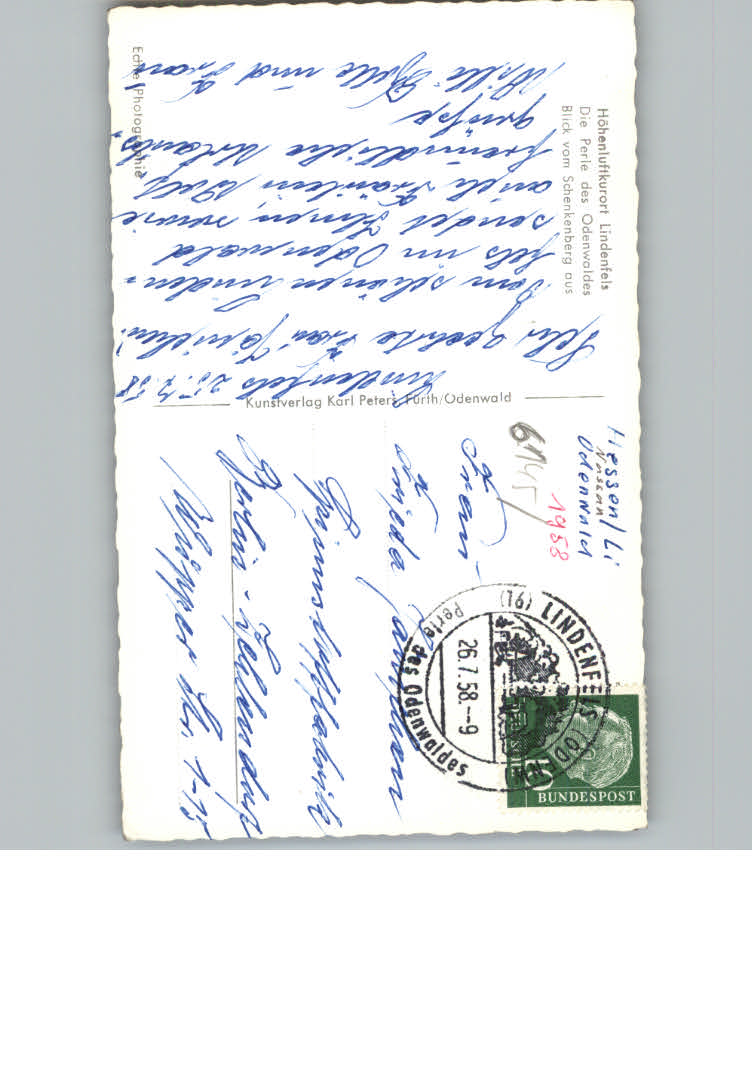 Höhenluftkurort Lindenfels
Die Perle des Odenwaldes
Blick vom Schenkenberg aus
Lindenfels 25.7.58
Sehr geehrte Frau
Vom schönen Linden-
fels im Odenwald
sendet Ihnen, sowie
auch Fräulein
freundliche Urlaubs-
grüße
Willi und Frau
Echte Photographie
Kunstverlag Karl Peters, Fürth/Odenwald
Hessen/Li
Nassau
Odenwald
1958
6145
(16) LINDENFELS (ODENW)
26.7.58.--9
Perle des Odenwaldes
10
BUNDESPOST
Frau
Frieda
Berlin-Zehlendorf